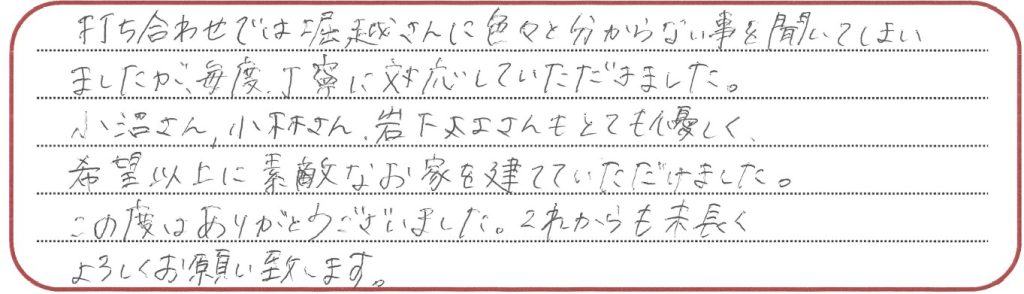 打ち合わせでは堀越さんに色々と分からない事を聞いてしまい
ましたが、毎度、丁寧に対応していただきました。
小沼さん、小林さん、岩下大工さんもとても優しく、
希望以上に素敵なお家を建てていただけました。
この度はありがとうございました。これからも末長く
よろしくお願い致します。